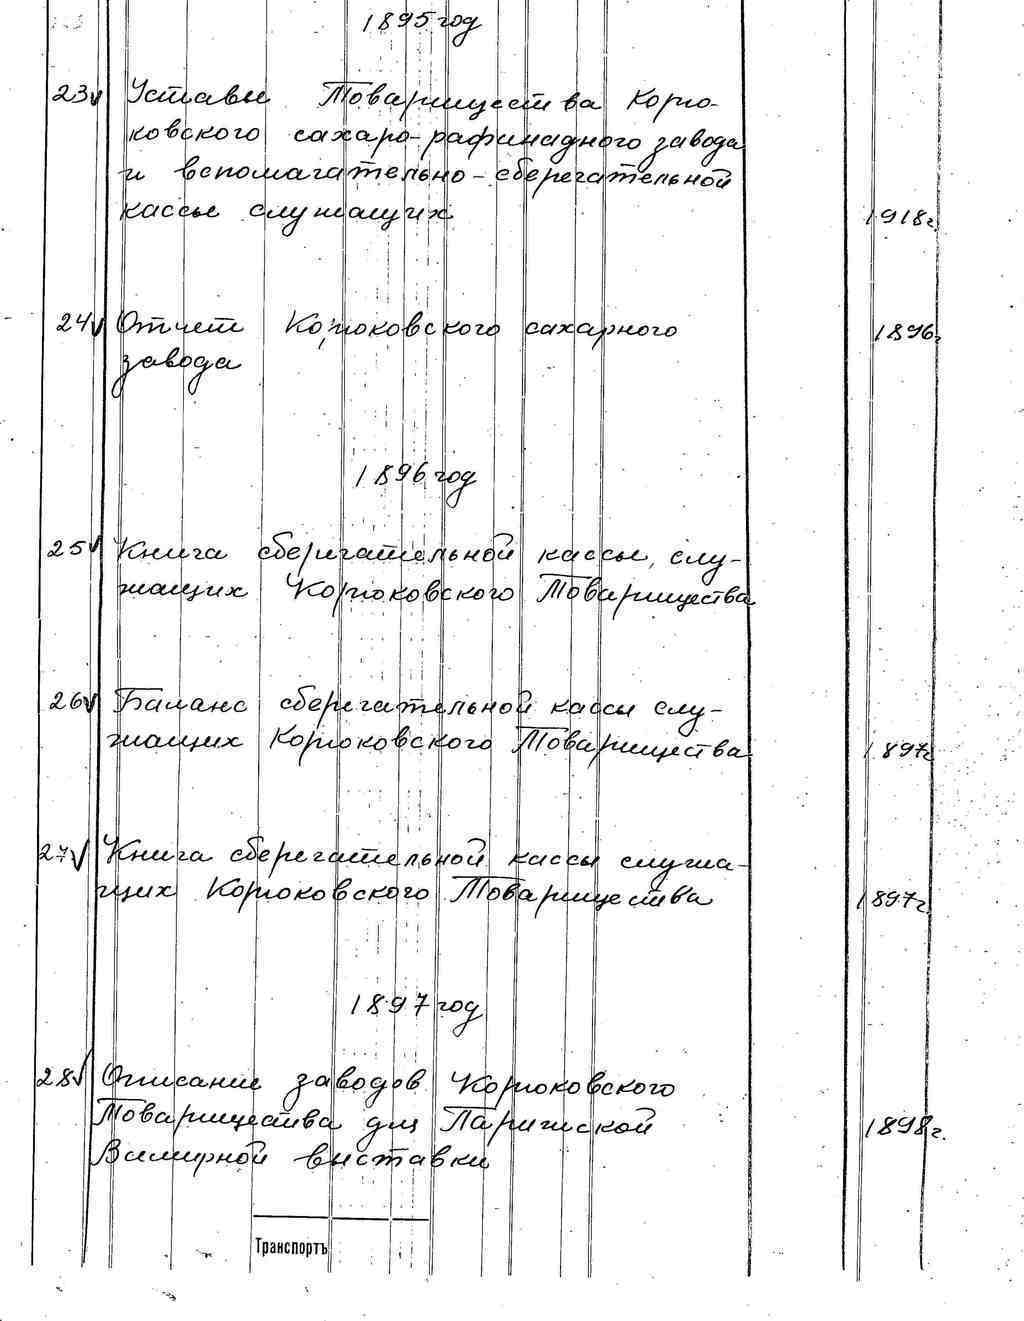 1895 год
23 Уставы Товарищества Корю-
ковского сахаро-рафинадного завода
и вспомагательно-сберегательной
кассы служащих 1918г.
24 Отчет Корюковского сахарного 1896г.
завода
1896 год
25 Книга сберегательной кассы, слу-
жащих Корюковского Товарищества
26 Баланс сберегательной кассы слу-
жащих Корюковского Товарищества 1897г
27 Книга сберегательной кассы служа-
щих Корюковского Товарищества 1897г.
1897 год
28 Описание заводов Корюковского
Товарищества для Парижской 1898г.
Всемирной выставки
Транспортъ